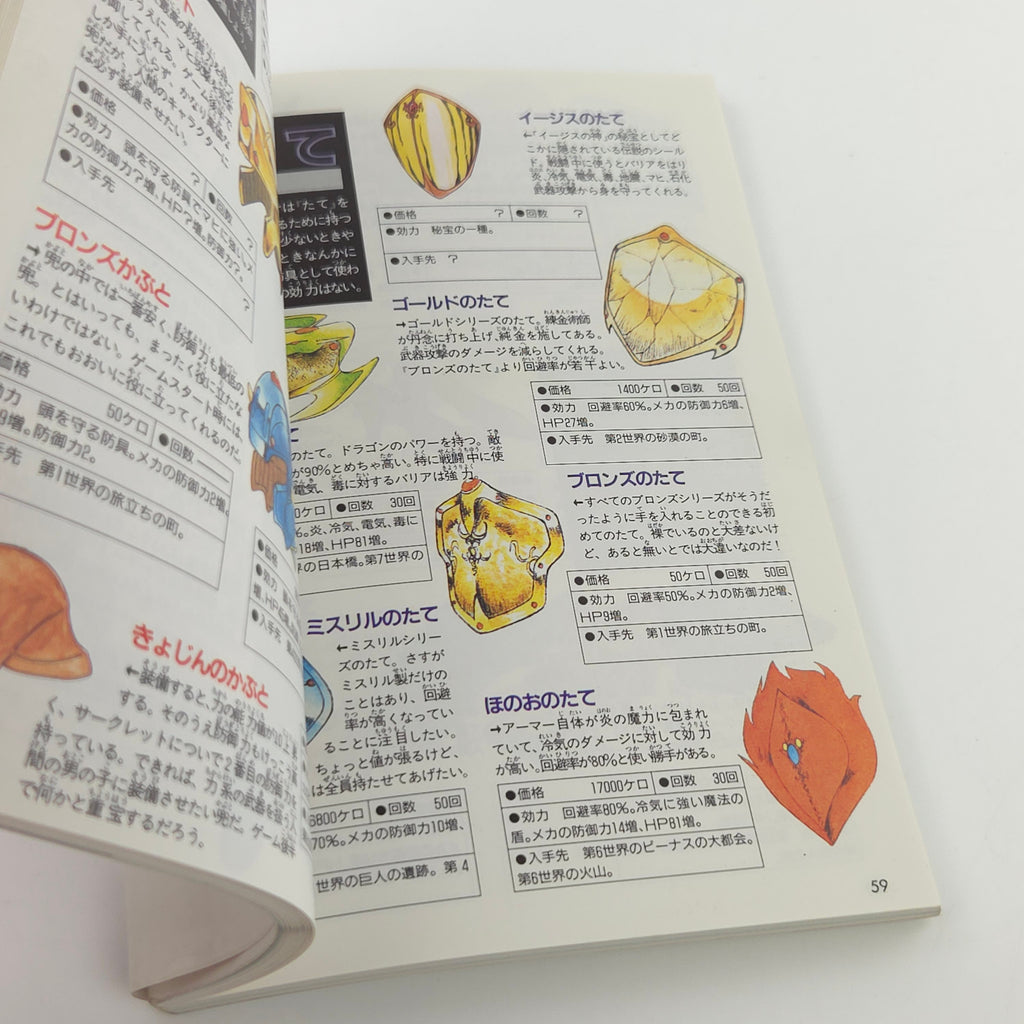 は必ず装備させたい。
●価格 ?
●回数 ?
●効力 頭を守る防具でマヒに強い。メ
カの防御力?増、HP?増。防御力?。
●入手先 ?
ブロンズかぶと
→兜の中では一番安く、防御力も最低の
兜。とはいっても、まったく役に立たな
いわけではない。ゲームスタート時には、
これでもおおいに役に立ってくれるのだ
価格 50ケロ ●回数
効力 頭を守る防具。メカの防御力2増、
9増。防御力2。
手先 第1世界の旅立ちの町。
きょじんのかぶと
する。そのうえ防御力も
く、サークレットについで2番目の防御力を
持っている。できれば、力系の武器を扱う人
間の男の子に装備させたい兜だ。ゲーム後半
で何かと重宝するだろう。
て
は『たて』を
るために持つ
少ないときや
ときなんかに
具として使わ
の効力はない。
イージスのたて
←『イージスの神』の秘宝としてど
こかに隠されている伝説のシール
ド。戦闘中に使うとバリアをはり
炎、冷気、電気、毒、地震、マヒ、石化
武器攻撃から身を守ってくれる。
●価格 ? ●回数 ?
●効力 秘宝の一種。
●入手先 ?
ゴールドのたて
→ゴールドシリーズのたて。錬金術師
が丹念に打ち上げ、純金を施してある。
武器攻撃のダメージを減らしてくれる。
『ブロンズのたて』より回避率が若干よい。
●価格 1400ケロ ●回数 50回
●効力 回避率60%。メカの防御力6増、
HP27増。
●入手先 第2世界の砂漠の町。
のたて。ドラゴンのパワーを持つ。敵
が90%とめちゃ高い。特に戦闘中に使
電気、毒に対するバリアは強力。
0ケロ ●回数 30回
%。炎、冷気、電気、毒に
18増、HP81増。
界の日本橋。第7世界の
ブロンズのたて
←すべてのブロンズシリーズがそうだ
ったように手を入れることのできる初
めてのたて。裸でいるのと大差ないけ
ど、あると無いとでは大違いなのだ!
●価格 50ケロ ●回数 50回
●効力 回避率50%。メカの防御力2増、
HP9増。
●入手先 第1世界の旅立ちの町。
ミスリルのたて
←ミスリルシリー
ズのたて。さすが
ミスリル製だけの
ことはあり、回避
率が高くなってい
ることに注目したい。
ちょっと値が張るけど、
は全員持たせてあげたい。
6800ケロ ●回数 50回
70%。メカの防御力10増、
世界の巨人の遺跡。第4
ほのおのたて
→アーマー自体が炎の魔力に包まれ
ていて、冷気のダメージに対して効力
が高い。回避率が80%と使い勝手がある。
●価格 17000ケロ ●回数 30回
●効力 回避率80%。冷気に強い魔法の
盾。メカの防御力14増、HP81増。
●入手先 第6世界のビーナスの大都会。
第6世界の火山。
59